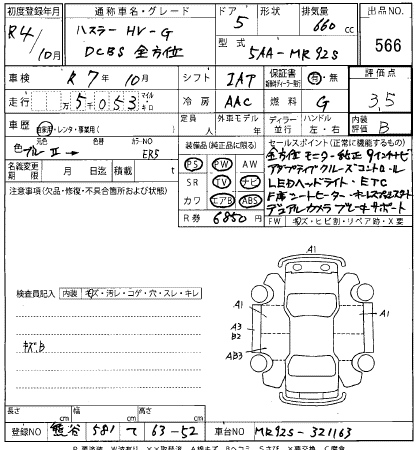 初度登録年月 通称車名・グレード ドア 形状 排気量 出品NO.
R4/10月 ハスラー HV-G DCBS 全方位 5 660cc 566
型式 5AA-MR92S
車検 R7年10月 シフト IAT 保証書 有・無 評価点
走行 5万053 マイル キロ 冷房 AAC 燃料 G 3.5
車歴 自家用・レンタ・事業用( ) 定員 人 外車モデル 年 ディーラー 並行 ハンドル 左・右 内装評価 B
元色 カラーNO 装備品(純正品に限る) セールスポイント(正常に機能するもの)
色 ブルーⅡ → ER5 PS PW AW 全方位モニター純正9インチナビ
名義変更期限 月 日迄 積載 t SR TV ナビ アダプティブクルーズコントロール
注意事項(欠品・修復・不具合箇所および状態) カワ エアB ABS LEDヘッドライト・ETC
R券 6850円 F席シートヒーター・キーレスプッシュスタート
デュアルカメラブレーキサポート
FW キズ・ヒビ割・リペア跡・X要
検査員記入 内装 キズ・汚レ・コゲ・穴・スレ・キレ
キズ、B
A1
A1 A1
A3
B2
AB3
A1
長さ cm 幅 cm 高さ cm
登録NO 熊谷 581 て 63-52 車台NO MR92S-321163